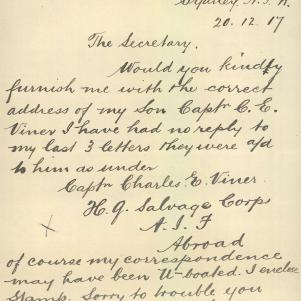 Sydney N.S.W.
20.12.17
The Secretary.
Would you kindly
furnish me with the correct
address of my Son Captn C. E.
Viner I have had no reply to
my last 3 letters they were a/d
to him as under
Captn Charles. E. Viner.
H. Q. Salvage Corps
A. I. F
Abroad
of course my correspondence
may have been U-boated. I enclose
Stamp. Sorry to trouble you